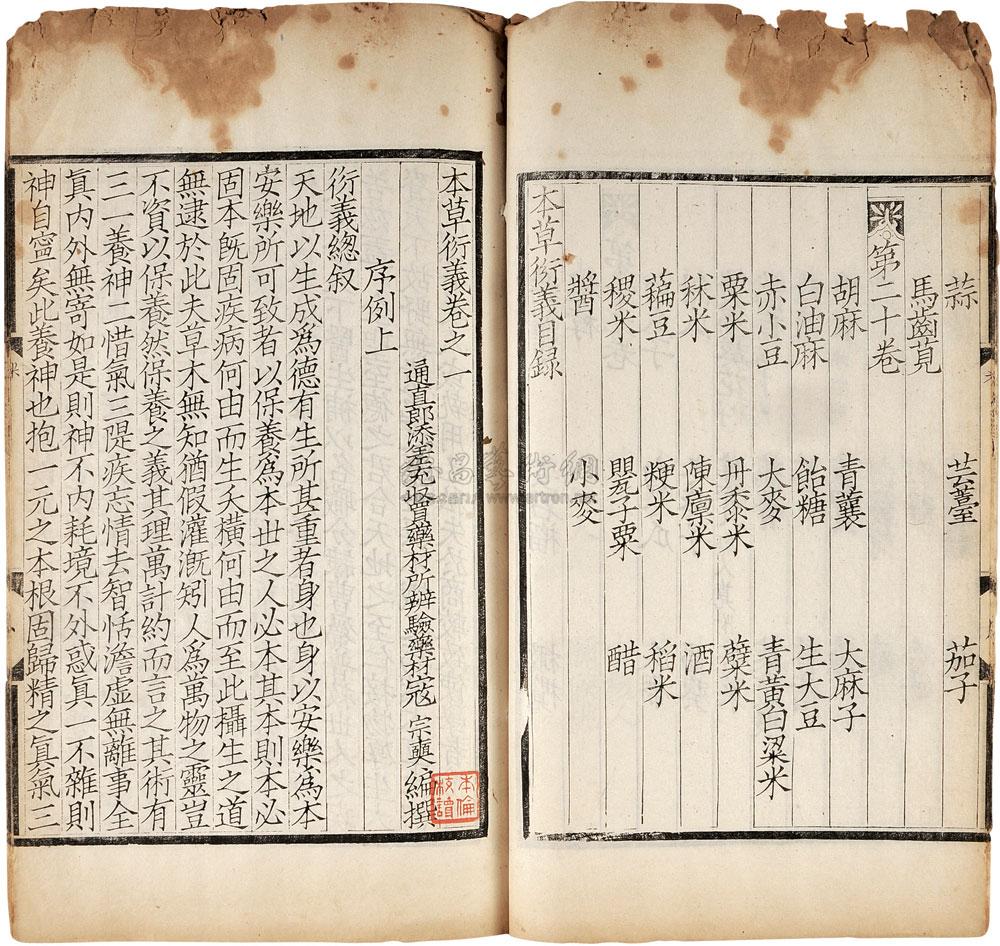 蒜 芸薹 茄子
馬齒莧
第二十卷
胡麻 青蘘 大麻子
白油麻 飴糖 生大豆
赤小豆 大麥 青黃白粱米
粟米 丹黍米 糵米
秫米 陳廩米 酒
藊豆 粳米 稻米
稷米 罌子粟 醋
醬 小麥
本草衍義目録
本草衍義卷之一
通直郎添差充收買藥材所辨驗藥材寇 宗奭 編撰
序例上
衍義緫叙
天地以生成爲德有生所甚重者身也身以安樂爲本
安樂所可致者以保養爲本世之人必本其本則本必
固本旣固疾病何由而生夭橫何由而至此攝生之道
無逮於此夫草木無知猶假灌漑矧人爲萬物之靈豈
不資以保養然保養之義其理萬計約而言之其術有
三一養神二惜氣三隄疾忘情去智恬澹虛無離事全
眞内外無寄如是則神不内耗境不外惑眞一不雜則
神自寧矣此養神也抱一元之本根固歸精之眞氣三
本倫
校讀